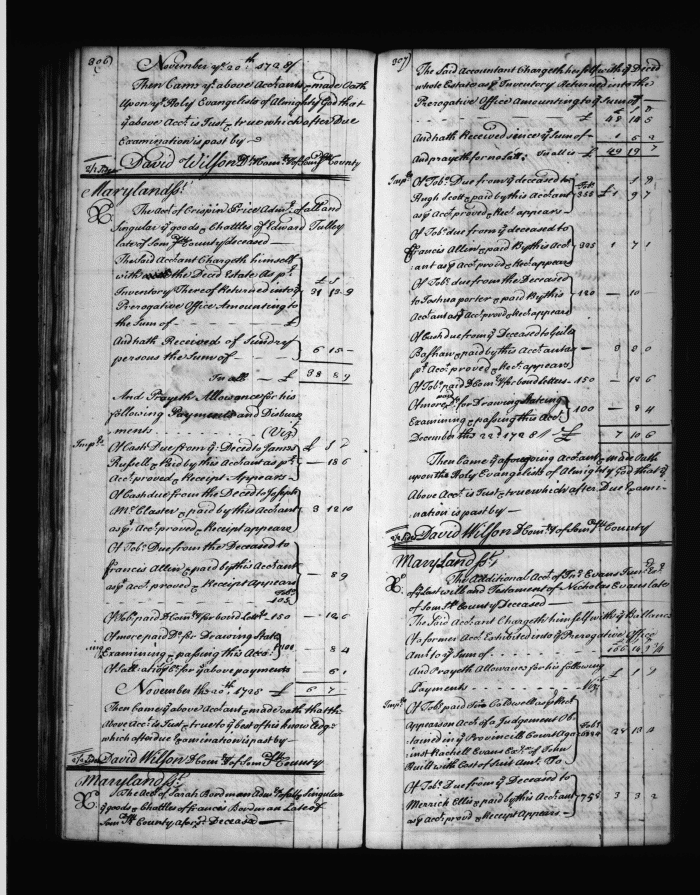 306)
November ye. 20th 1728/
Then Came ye above Accotants & made Oath
Upon ye Holy Evangelists of Almighty God that
ye above Acct. is Just & true which after Due
Examination is past by —
David Wilson D Comry of Somst County
Maryland Ss.
The Acct of Crispin Price Admr. of all and
Singular ye goods & Chattles of Edward Tulley
late of Som st County deceased
The Said Accotant Chargeth himself
with the Decd Estate As pr.
Inventory Thereof Returned into ye
Prerogative Office Amounting to
the Sum of — £ 31 13 9
And hath Received of Sundry
persons the Sum of — 6 15 —
In all — £ 38 8 9
And Prayeth Allowance for his
following Payments and Disburs
ments — (Viz)
Imprs. Of Cash Due from ye Deced to James
Russell & paid by this Accotant as pr.
Acct. proved & Receipt Appears — — 18 6
Of Cash due from the Deced to Joseph
McClaster & paid by this Accotant
as pr Acct. proved & Receipt appears 3 12 10
Of Tobo. Due from the Deceased to
Francis Allen & paid by this Accotant
as pr acct. proved & Receipt Appears — 8 9
Tobo. 105
Of Tobo. paid D Comry for bond Letrs. 150 — 12 6
Of more paid Do. for Drawing Stateing
Examining & passing this Acct. 100 — 8 4
Of Sallary for ye above payments 6 1
November the 20th 1728 £ 6 7
Then Came ye above Accotant & made oath that the
Above Acct. is Just & true to ye best of his knowledge
which after due Examination is past by —
David Wilson D Comry of Somst County
Maryland Ss.
The Acct of Sarah Bordman Admx of all & Singular
ye goods & Chattles of Francis Bordman Late of
Som st County aforesd Deceased
307)
The Said Accountant Chargeth himself with ye Deced
whole Estate as pr Inventory Returned into the
Prerogative Office Amounting to ye Sum of —
48 18 5
And hath Received since ye Sum of — 1 6 2
And prayeth for &c: In all is — £ 49 19 7
Imprs. Of Tobo. Due from ye deceased to
Hugh Scott & paid by this Accotant
as pr Acct proved & Rect appears — 358 £1 9 7
Of Tobo. due from ye deceased to
Francis Allen & paid By this Acct.
ant as pr Acct. provd & Rect appears 325 1 7 1
Of Tobo due from the Deceased
to Joshua porter & paid By this
Accotant as pr Acct provd & Rect appears 120 — 10 —
Of Cash due from ye Deceased to
Basshaw & paid by this Accotant as
pr. Acct. proved & Rect. appears 3 2 0
Of Tobo. paid D Comry for bond Letters — 150 — 12 6
Of more Do. for Drawing Stateing
Examining & passing this Acct. 100 — 8 4
December the 22d 1728/ £ 7 10 6
Then Came ye aforegoing Accotant & made Oath
upon the Holy Evangelists of Almighty God that ye
Above Acct is Just & true which after Due Exami-
nation is past by —
David Wilson D Comry of Somst County
Maryland Ss.
The Additional Acct of Jno. Evans Exr.
of ye Last will and Testament of Nicholas Evans late
of Som st County Deceased
The Said Accotant Chargeth himself with ye Ballance
of a former Acct. Exhibited into ye Prerogative Office
Amt to ye Sum of — 166 14 1
And Prayeth Allowance for his following
Payments — Viz
Imprs. Of Tobo. paid Caldwell as pr Rect
Appears on Acct. of a Judgement Ob-
tained in ye Provincial Court Aga-
inst Rachell Evans Exx of John
Ruill with Cost of Suit Amt. To 28 13 4
Of Tobo. Due from ye Deceased to
Merrick Ellis & paid by this Accotant
as pr Acct. provd & Receipt Appears — 755 3 3 2